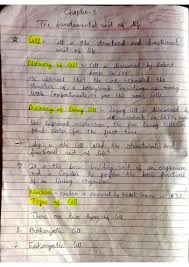 Chapter-5
The fundamental unit of life
Cell :- Cell is the structural and functional
unit of life
Discovery of cell :- Cell is discovered by Robert
Hooke in 1665.
He observed that the cork resembled the
structure of a honeycomb consisting of many
little compartments
Discovery of living cell :- living cell is discovered
by Leeuwenhoek in 1674, with
the improved microscope the free living cells in
pond water for the first time.
Why is the cell called the structural and
functional unit of life?
It is the building unit of an organism
and is capable to perform the basic functions
of living organism
Nucleus :- nucleus is discovered by Robert Brown 1831
Types of cell
There are two types of cell
1. Prokaryotic cell
2. Eukaryotic cell